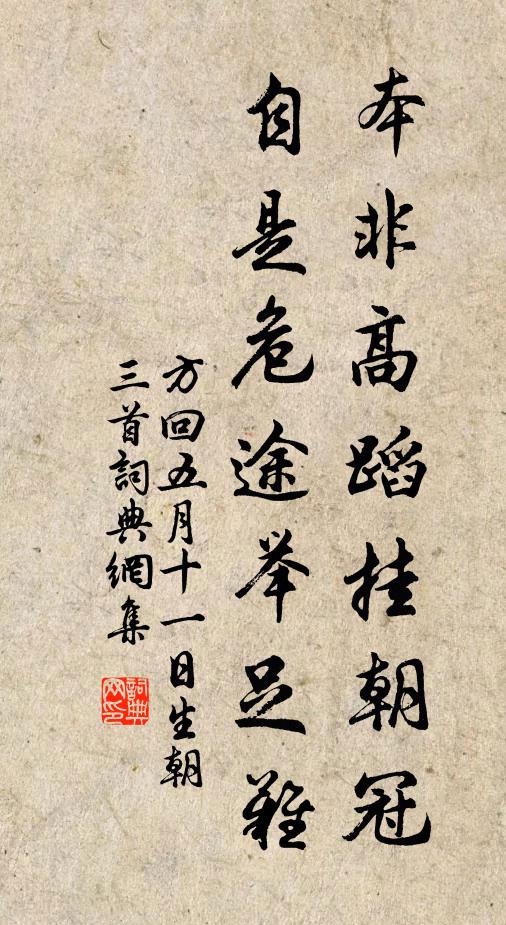 本非高蹈挂朝冠
自是危途举足難
方回五月十一日生朝
三首詞典網集
詞典网印